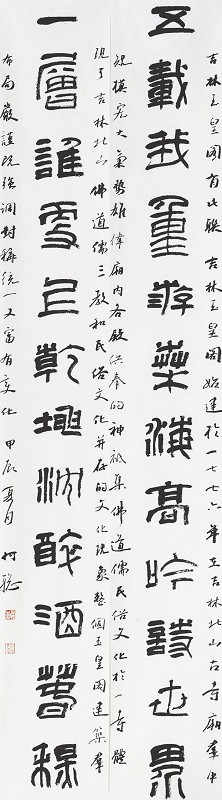 吉林玉皇阁有此联 吉林玉皇阁始建于一七七六年 在吉林北山古寺庙群中
五載我重游桒海高吟詩世界
规模宏大气势雄伟庙内各殿供奉的神祇集佛道儒民俗文化于一寺體
现了吉林北山佛道儒三教和民俗文化并存的文化现象整個玉皇阁建築群
一層誰更上乾坤沈醉酒萅穐
布局嚴謹既强调对称统一又富有变化 甲辰夏月 何聪